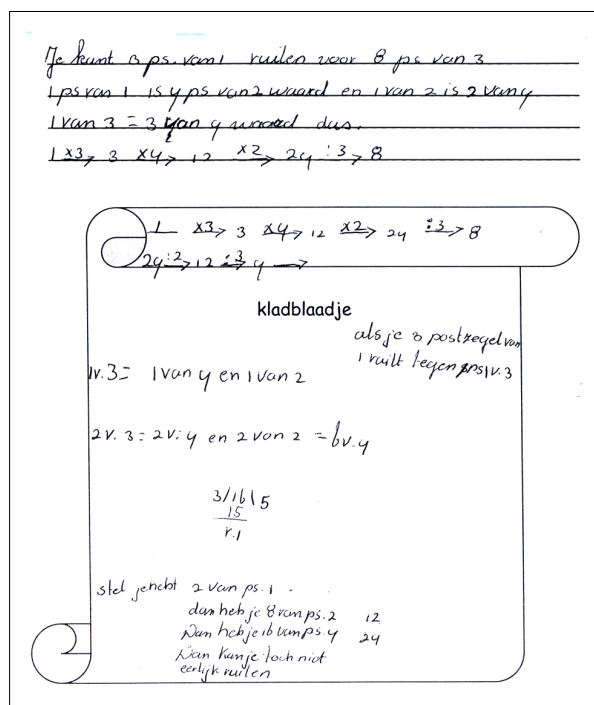 Je kunt 3 ps. van 1 ruilen voor 8 ps van 3
1 ps van 1 is 4 ps van 2 waard en 1 van 2 is 2 van 4
1 van 3 = 3 van 4 waard dus.
1 x3→ 3 x4→ 12 x2→ 24 :3→ 8
1 x3→ 3 x4→ 12 x2→ 24 :3→ 8
24 :2→ 12 :3→ 4 →
kladblaadje
als je 3 postzegel van
1 ruilt tegen ps 1v.3
1v.3= 1 van 4 en 1 van 2
2v.3=2v.4 en 2 van 2 = 6v.4
3/16\5
15
r.1
stel je hebt 2 van ps.1.
dan heb je 8 van ps.2 12
Dan heb je 16 van ps.4 24
Dan kan je toch niet
eerlijk ruilen